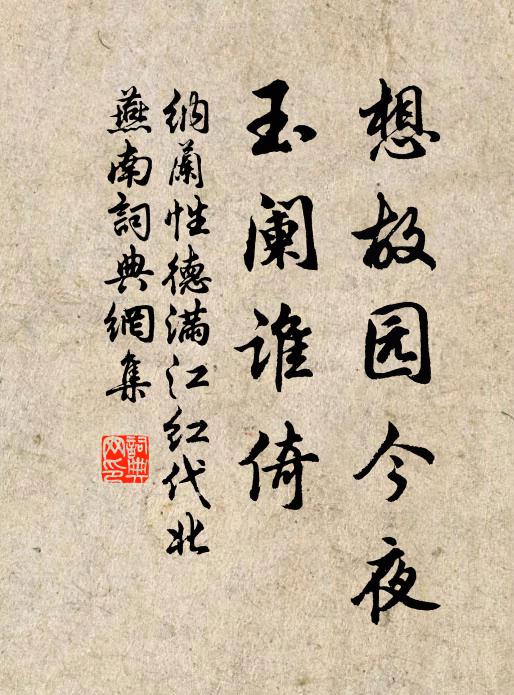 想故园今夜
玉阑谁倚
纳兰性德满江红代北
燕南詞典網集
詞典网印